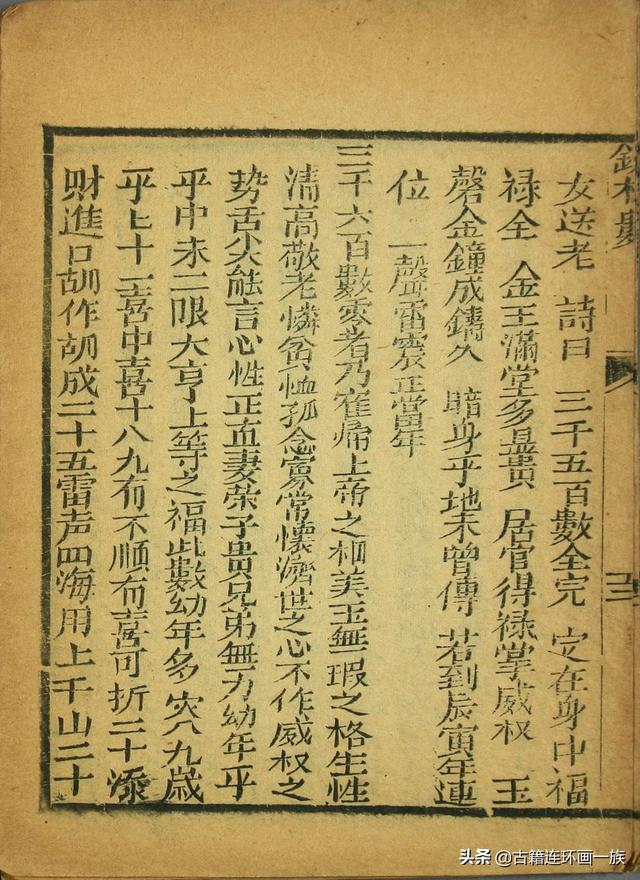 女送老 詩曰 三千五百數全完 定在身中福
禄全 金王滿堂多显貴 居官得禄掌威权 玉
磬金鐘成鑄久 暗身乎地未曾傳 若到辰寅年連
位 一聲雷震正當年
三千六百數零者乃上帝之相美玉無瑕之格生性
清高敬老憐貧恤孤念寡常懷濟世之心不作威权之
势舌尖能言心性正直妻荣子貴兄弟無力幼年乎
乎中未二限大亨上等之福此數幼年多灾八九歳
乎七十一喜中喜十八九有不順有喜可折二十添
財進口胡作胡成二十五雷声四海用上千山二十
头条 @古籍连环画一族